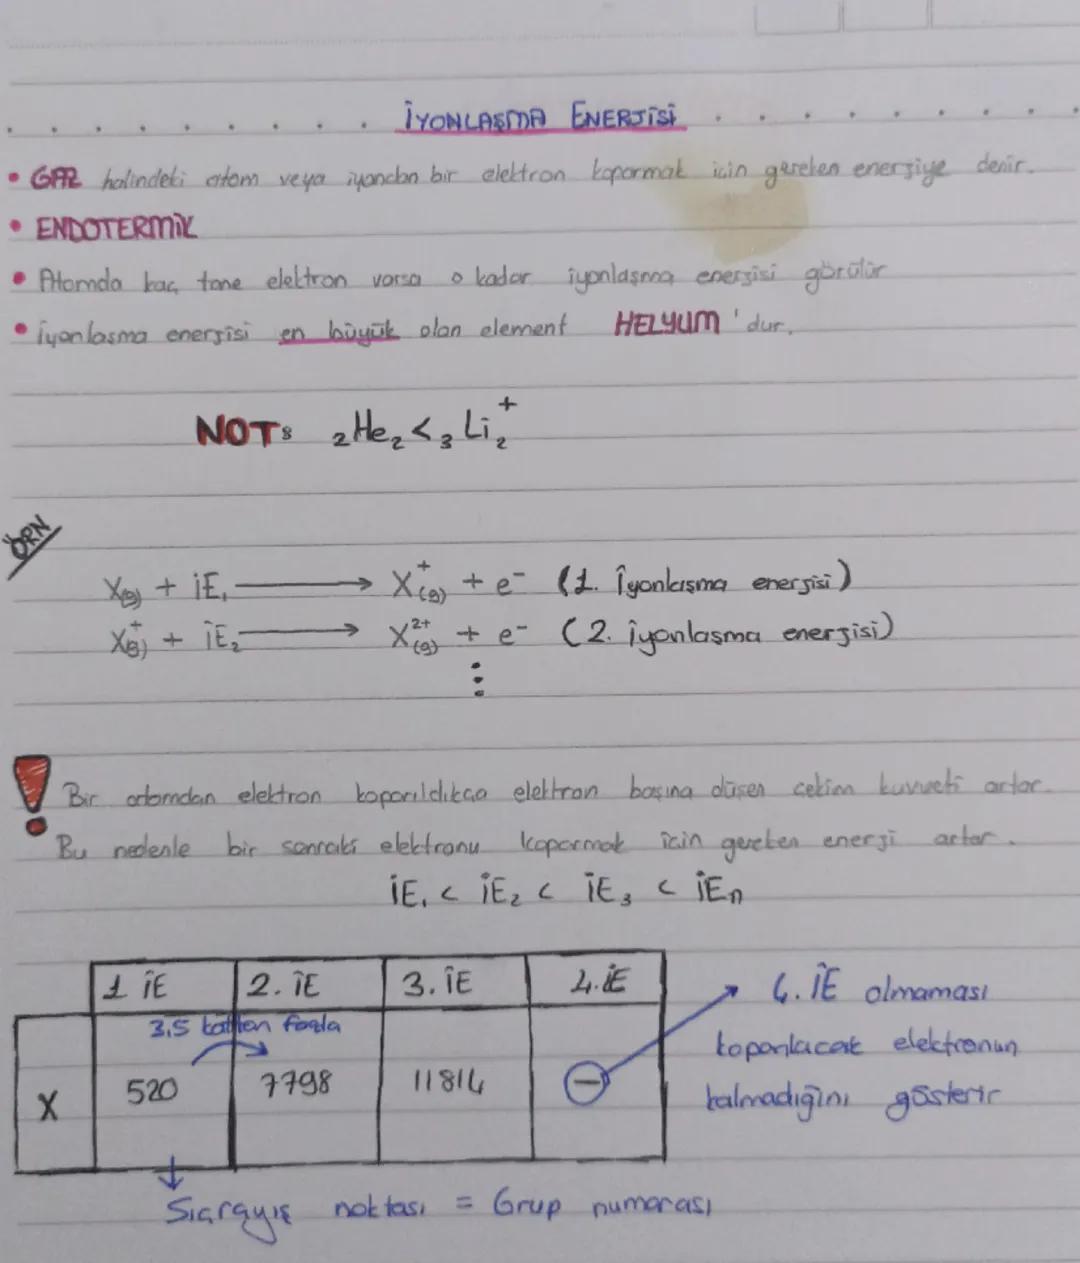 İYONLAŞMA ENERJİSİ
• GAZ halindeki atom veya iyondan bir elektron koparmak için gereken enerjiye denir.
• ENDOTERMİK
• Atomda kaç tane elektron varsa o kadar iyonlaşma enerjisi görülür
• İyonlaşma enerjisi en büyük olan element HELYUM'dur.
NOT: ₂He₂ < ₃Li₂⁺
ÖRN
X(g) + İE₁ ⟶ X⁺(g) + e⁻ (1. İyonlaşma enerjisi)
X⁺(g) + İE₂ ⟶ X²⁺(g) + e⁻ (2. iyonlaşma enerjisi)
⋮
! Bir atomdan elektron koparıldıkça elektron başına düşen çekim kuvveti artar.
Bu nedenle bir sonraki elektronu koparmak için gereken enerji artar.
İE₁ < İE₂ < İE₃ < İEn
1 İE 2. İE 3. İE 4. İE
3,5 kattan fazla
X 520 7798 11814 −
4. İE olmaması
koparılacak elektronun
kalmadığını gösterir
Sıçrayış noktası = Grup numarası